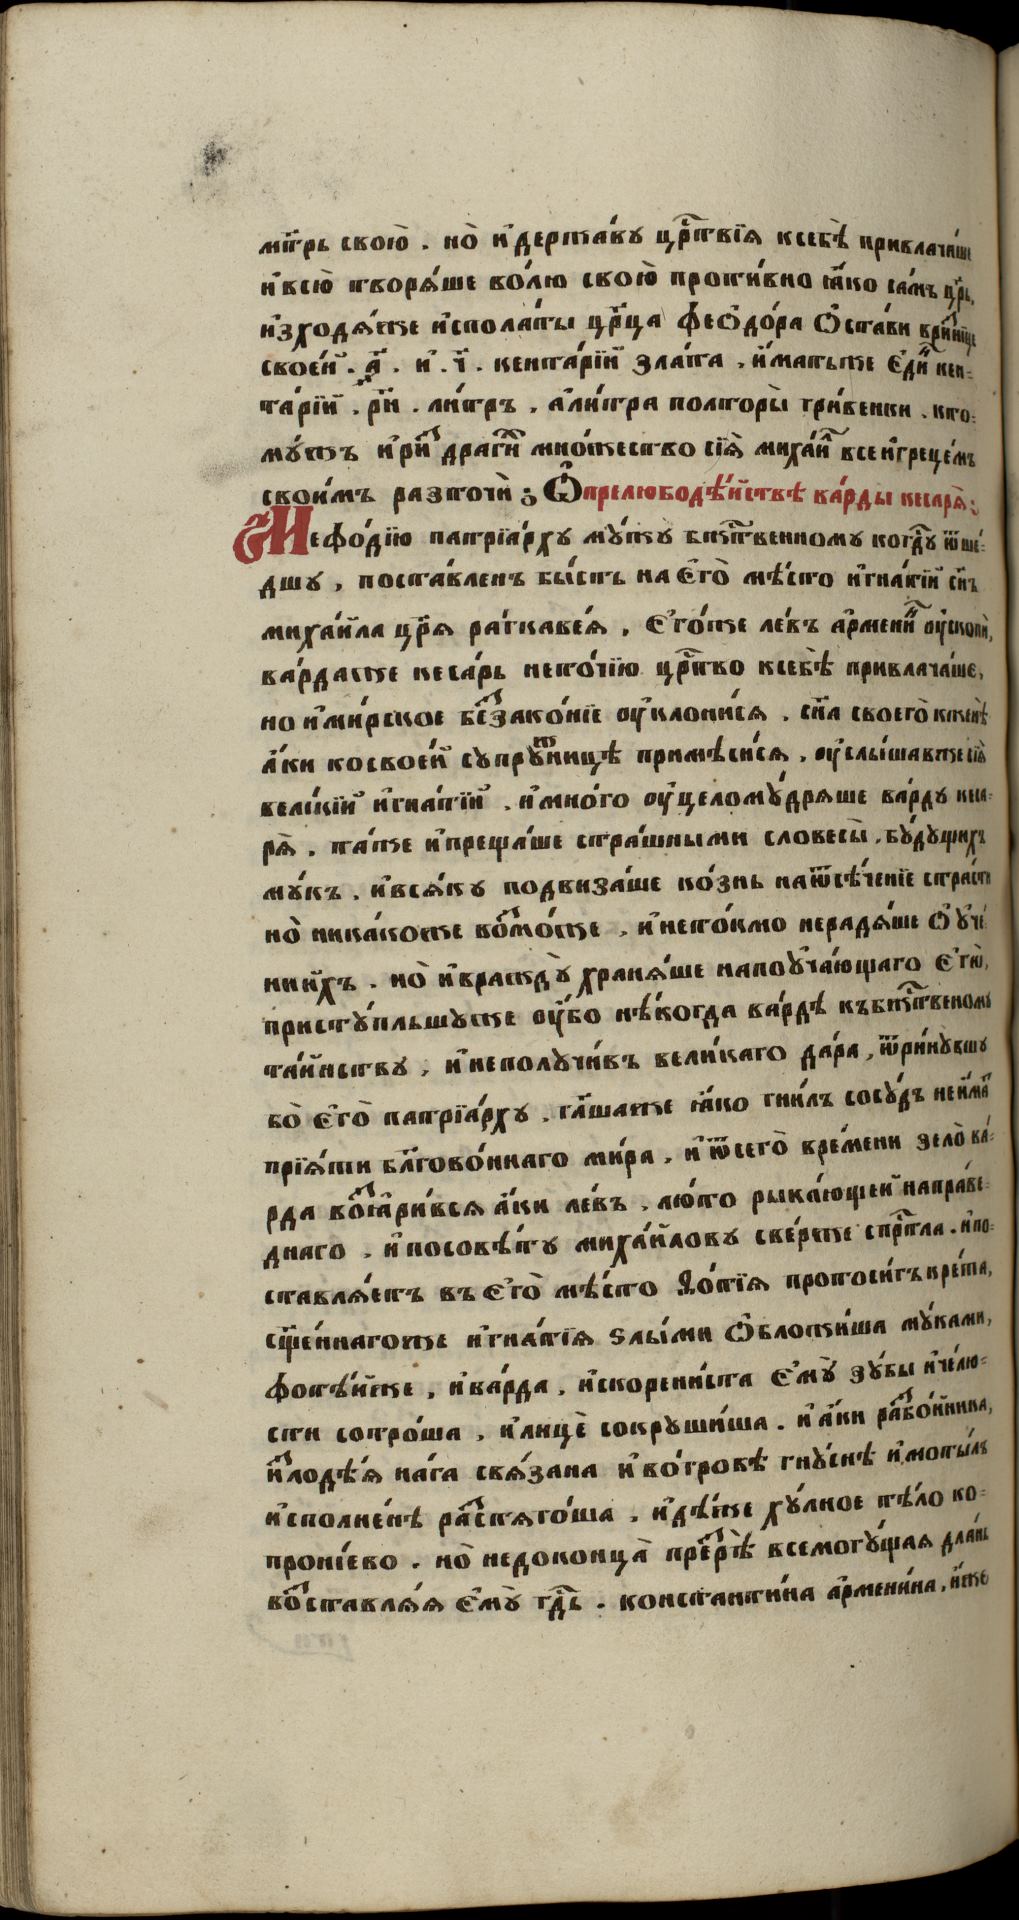 мт҃рь свою̀ . но̀ и҆держа́ву црⷭ҇твїѧ ксебѣ̀ привлачи́ше
и҆всю̀ творѧ́ше во́лю свою̀ проти́вно ꙗ҆́ко са́мъ цр҃ь,
и҆зходѧ́же и҆спола́ты цр҃ца феѡдо́ра ѡ҆ста́ви
своеи́ . а҃ . и҆ . ч҃ . кентарїи́ зла́та , и҆́матьже є҆ди́н кен=
та́рїи . рк҃и . ли́тръ , а҆ли́тра полторы̀ гри́венки . кто=
му́жъ и҆ри́з драги́х мно́жество сїѧ̀ миха́ил все и҆грецє́мъ
свои́мъ разточѝ ; Ѡ҆прелюбодѣ́йствѣ ва́рды кесарѧ̀ ;
Меѳо́дїю патрїа́рху му́жу бж҃твенному когдꙋ ѿше́=
дшу , поста́вленъ бы́сть на є҆го̀ мѣ́сто и҆гна́тїи сн҃ъ
миха́ила цр҃ѧ рагкаве́ѧ , є҆го́же ле́въ а҆рмени́н ᲂу҆скопѝ,
ва́рдаже кеса́рь нето́чїю црⷭ҇тво ксебѣ̀ привлача́ше,
но и҆ми́рское беззако́нїе ᲂу҆клони́сѧ . сн҃а своего̀ кженѣ̀
а҆́ки косвое́й супру́жницѣ примѣси́сѧ , ᲂу҆слы́шавже сїѧ̀
вели́кїи и҆гна́тїи , и҆мно́го ᲂу҆целому́дрѧше ва́рду кеса=
рѧ̀ . та́же и҆преща́ше стра́шными словесы̀ , бу́дущихъ
му́къ . и҆всѧ́ку подвиза́ше ко́знь наѿсѣ́ченїе стра́сти
но̀ ника́коже возмо́же , и҆нето́кмо нерадѧ́ше ѡ҆
ни́хъ . но̀ и҆вражду̀ хранѧ́ше напоуча́ющаго є҆го̀,
присту́пльшуже ᲂу҆́бо нѣ́когда ва́рдѣ къбжⷭ҇твеному
та́инству , и҆неполучи́въ вели́каго да́ра , ѿрину́вшу
бо̀ є҆го̀ патрїа́рху . гл҃шаже ꙗ҆́ко гни́лъ сосу́дъ неи҆́мать
прїѧ́ти бл҃гово́ннаго ми́ра , и҆ѿсего̀ вре́мени зело̀ ва́=
рда возꙗри́всѧ а҆́ки ле́въ , лю́то рыка́ющеи напра́ве=
днаго . и҆посовѣ́ту миха́илову све́рже спрⷭ҇тла . и҆по=
ставлѧ́етъ въ є҆го̀ мѣ́сто Фо́тїѧ протоси́гъкри́та,
сщ҃е́ннагоже и҆гна́тїѧ ѕлы́ми ѡ҆бложи́ша му́ками,
фотѣ́йже , и҆ва́рда , и҆скорени́ста є҆му̀ зу́бы и҆че́лю=
сти сотро́ша , и҆лицѐ сокруши́ша . и҆ а҆́ки разбо́йника,
и҆ злодѣ́ѧ на́га свѧ́зана и҆во́гробѣ гну́снѣ и҆моты́лъ
и҆сполне́нѣ разтѧго́ша , и҆дѣ́же ху́лное тѣ́ло ко=
пронїево . но̀ недоконца̀ презрѣ̀ всемогу́щаѧ дла́нь
возставлѧ́ѧ є҆му̀ гдⷭ҇ь . константи́на а҆рмени́на , и҆́же